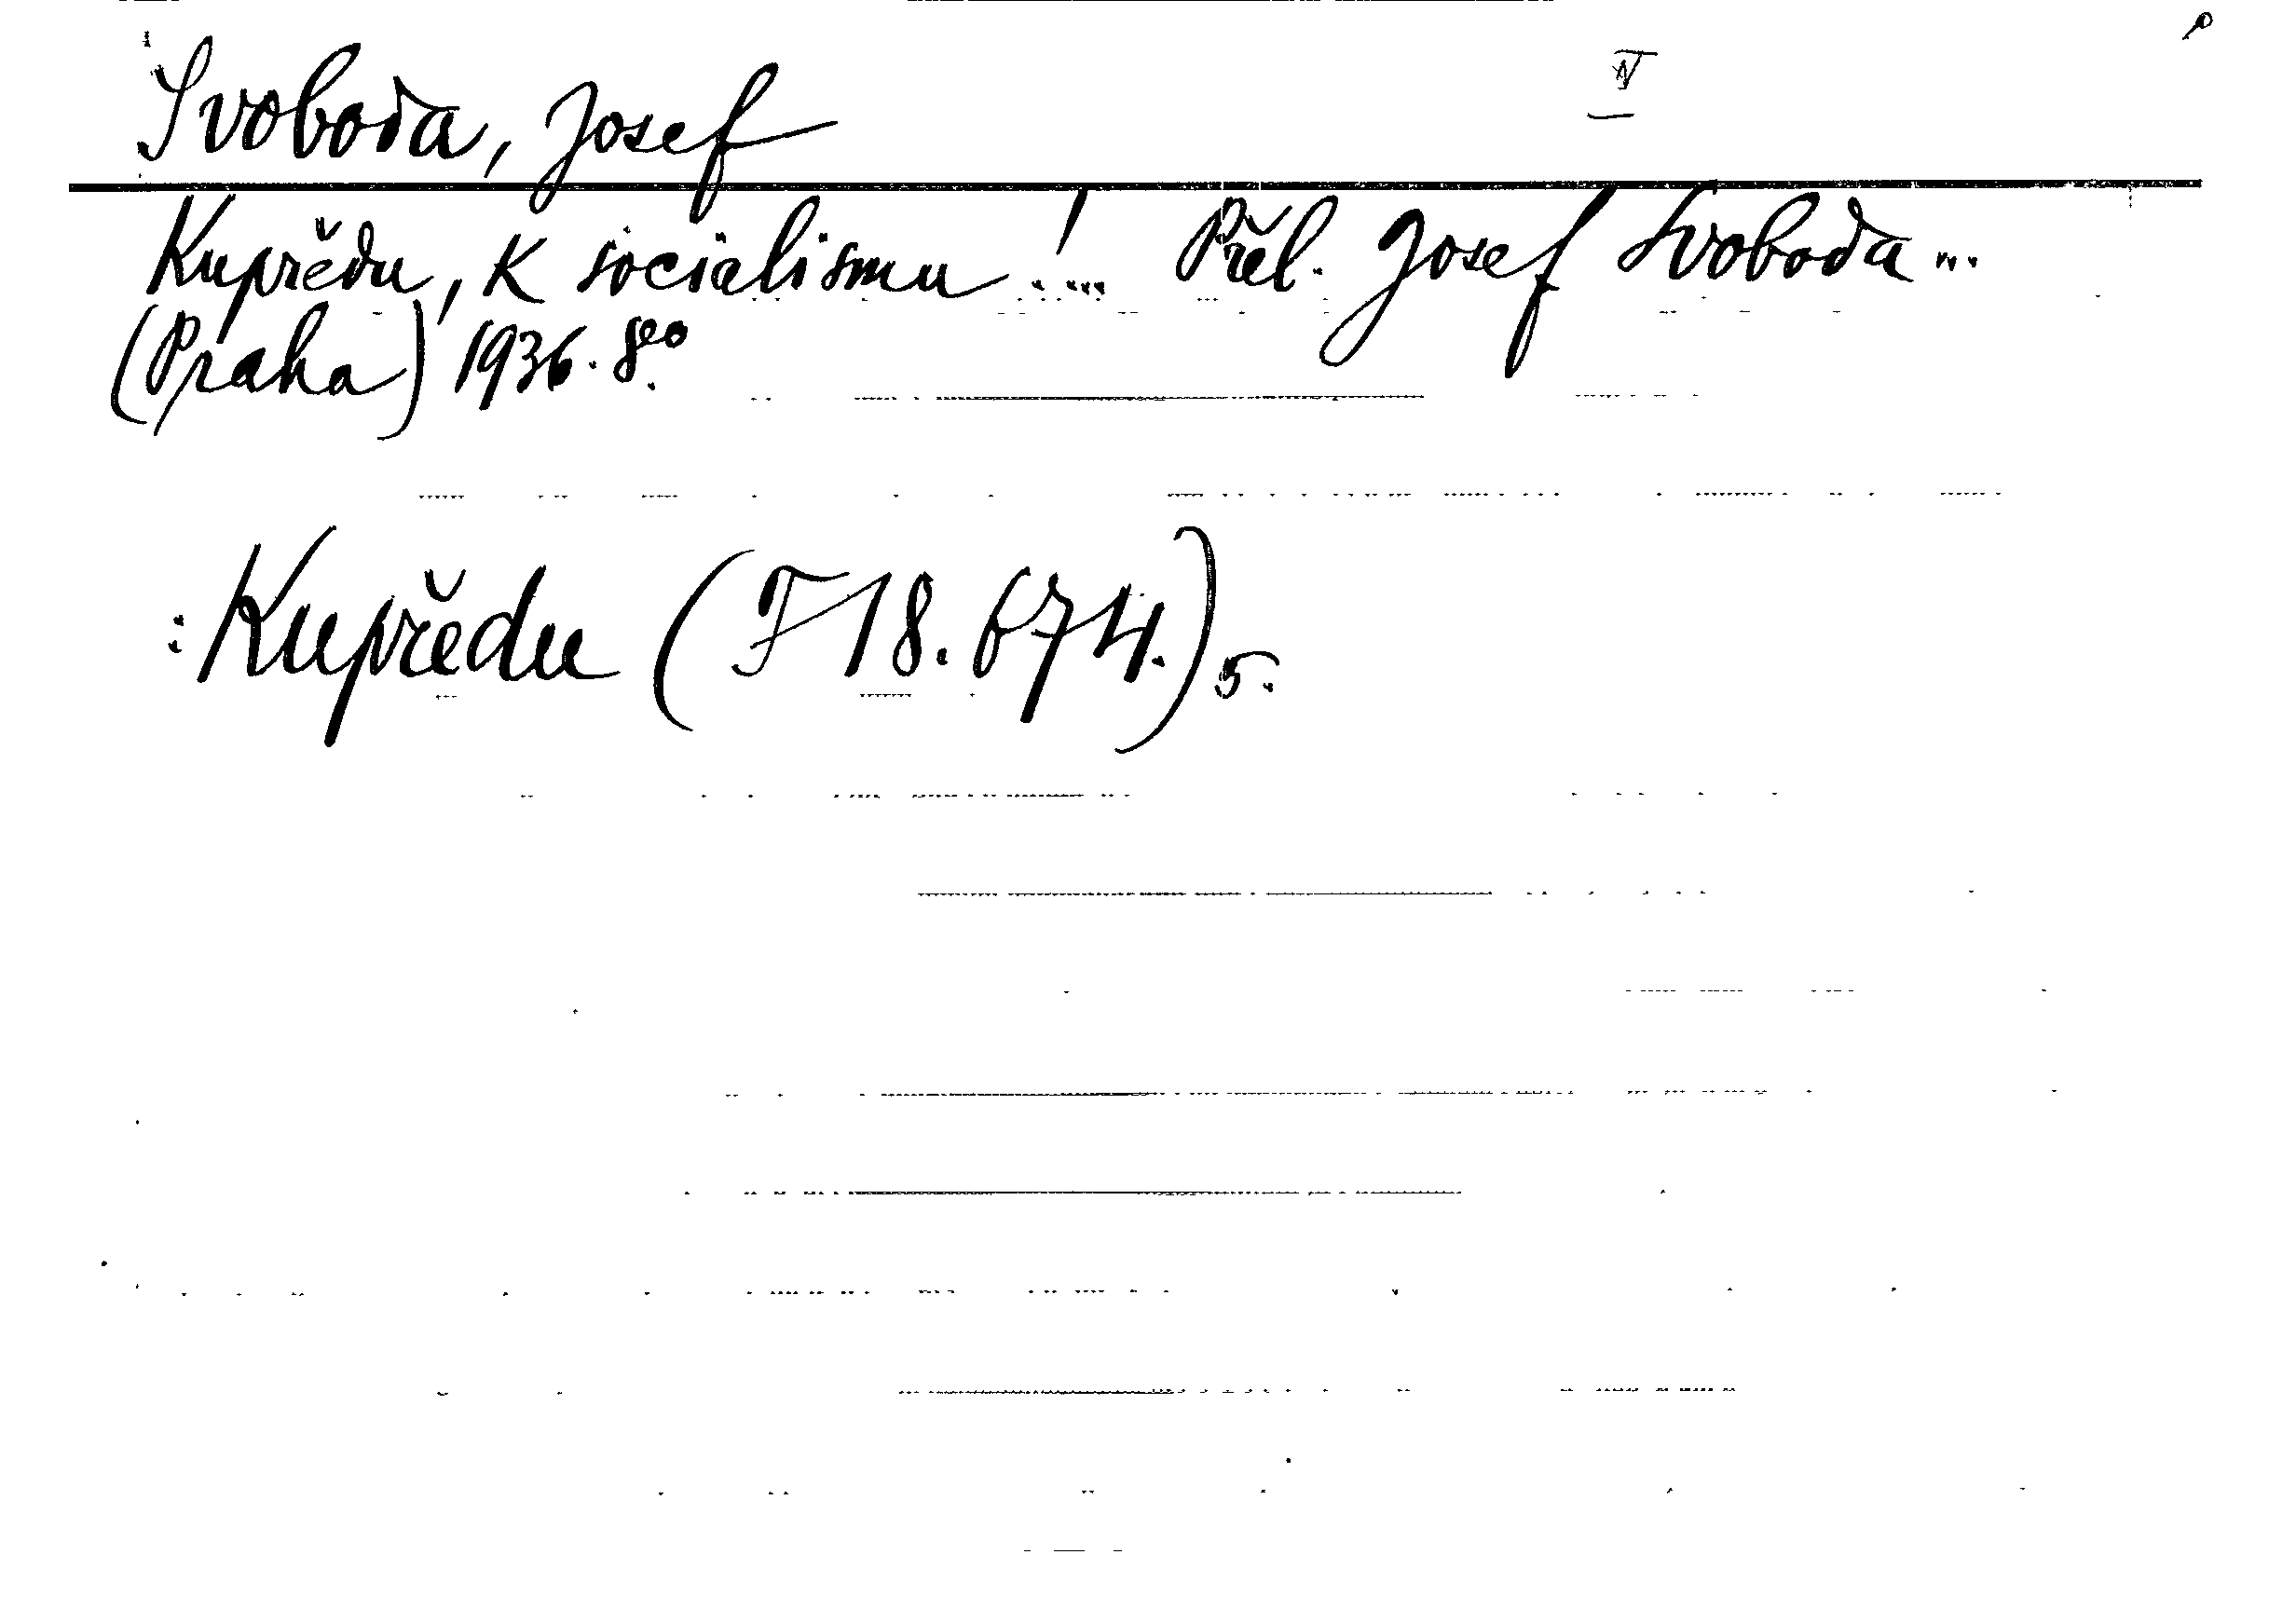 Svoboda, Josef
Kupředu, k socialismu!... Přel. Josef Svoboda...
(Praha) 1936. 8°°.
:Kupředu (F 18.674.) 5.